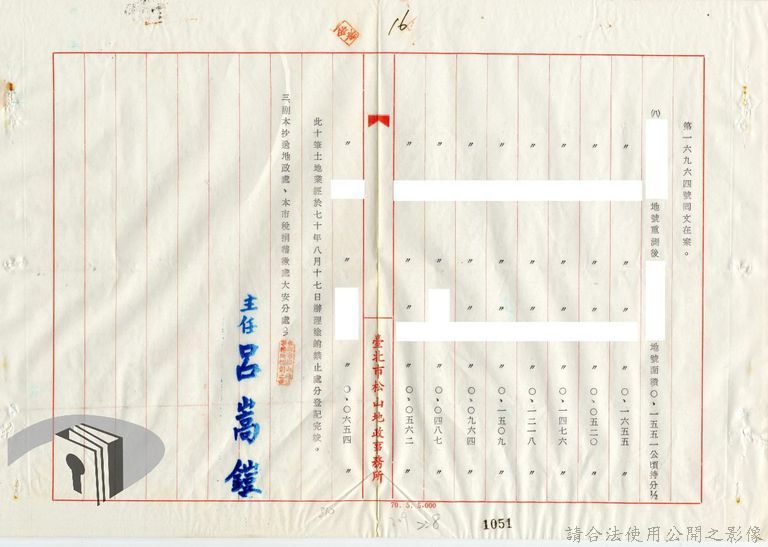 16
第一六九六四號同文在案。
㈧ 地號重測後 地號面積〇、一五五一公頃持分½
〃 〃 〃 〇、一六五五 〃
〃 〃 〃 〇、〇五二〇 〃
〃 〃 〃 〇、一四七六 〃
〃 〃 〃 〇、一二一八 〃
〃 〃 〃 〇、一五〇九 〃
〃 〃 〃 〇、〇九六四 〃
〃 〇、〇四八七 〃
〃 〃 〃 〇、〇五六二 〃
臺北市松山地政事務所
〃 〃 〇、〇六五四 〃
此十筆土地業經於七十年八月十七日辦理塗銷禁止處分登記完竣。
三、副本抄送地政處、本市稅捐稽徵處大安分處。
主任 呂嵩鎧
70. 5. 5.000
1051
請合法使用公開之影像